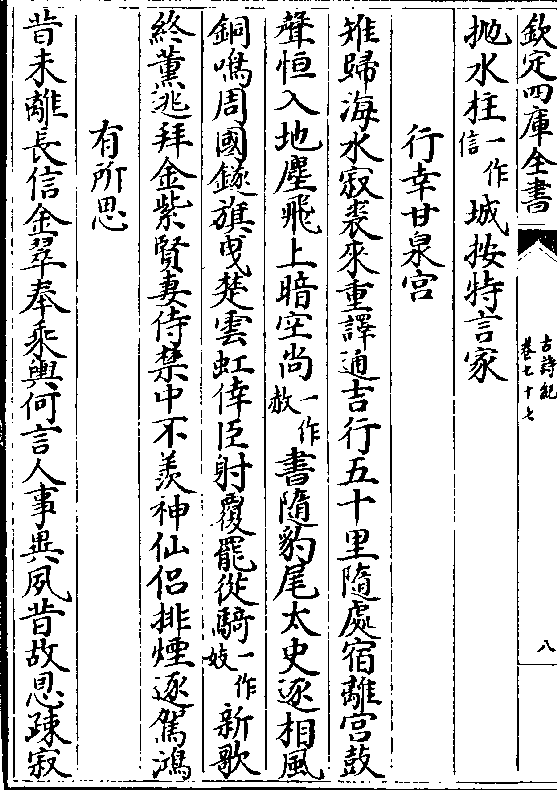 欽定四庫全書
古詩紀
卷七十七
八
拋水柱一作信城按特言家
行幸甘泉宮
雉歸海水寂裘來重譯通吉行五十里隨處宿離宮鼓
聲恒入地塵飛上暗空尚一作赦書隨豹尾太史逐相風
銅鳴周國鐩旗曳楚雲虹倖臣射覆罷從騎一作妓新歌
終薰逃拜金紫賢妻侍禁中不羨神仙侶排煙逐駕鴻
有所思
昔未離長信金翠奉乘輿何言人事異夙昔故恩疎寂